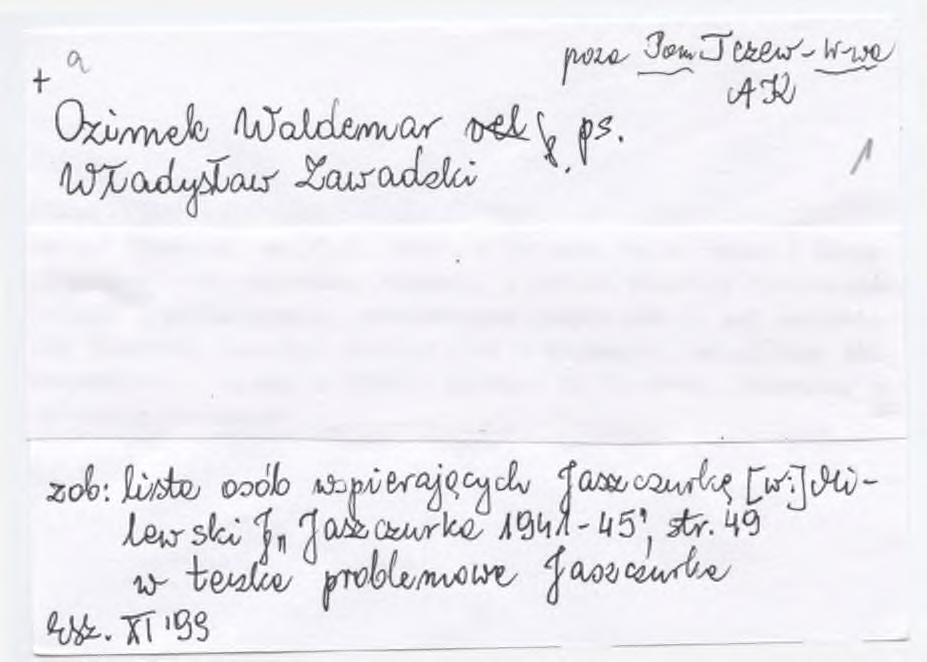 a
+
poza Pom Tczew - W-wa
AK
Ozimek Waldemar ps.
Władysław Zawadzki
1
zob: lista osób wspierających Jaszczurkę [w:] Mi-
lewski J„ Jaszczurka 1941-45", str. 49
w teczka problemowa Jaszczurka
XI '99